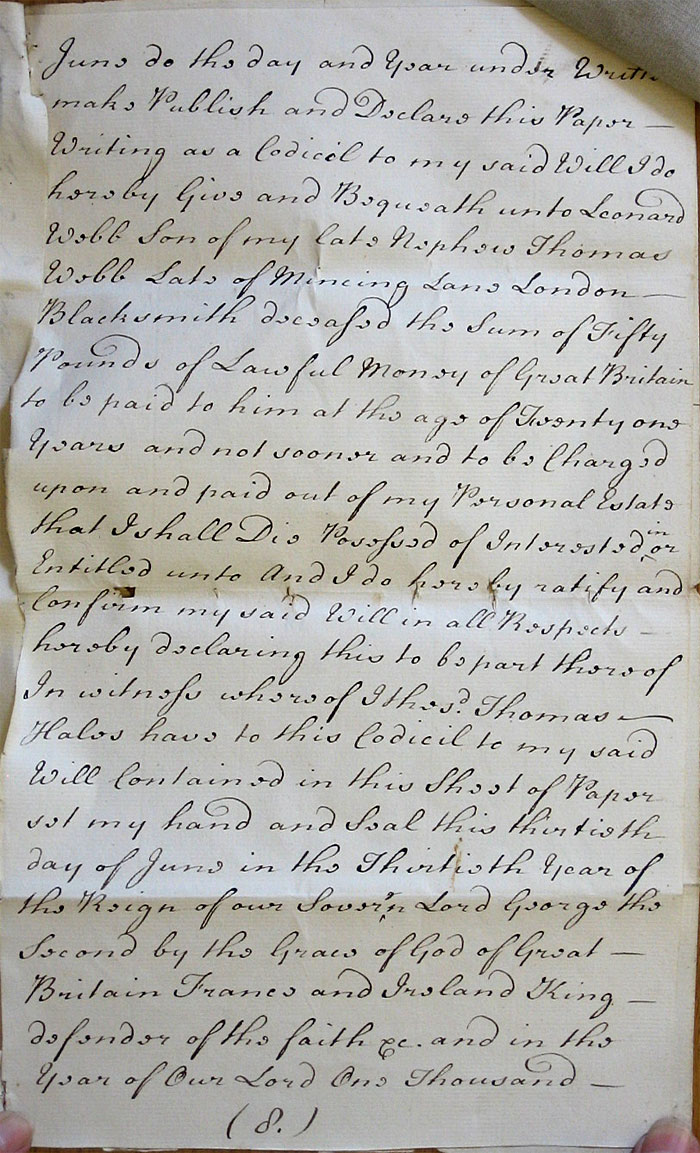 June do the day and Year under
make Publish and Declare this Paper —
Writing as a Codicil to my said Will I do
hereby Give and Bequeath unto Leonard
Webb Son of my late Nephew Thomas
Webb Late of Mincing Lane London —
Blacksmith deceased the Sum of Fifty
Pounds of Lawful Money of Great Britain
to be paid to him at the age of Twenty one
Years and not sooner and to be Charged
upon and paid out of my Personal Estate
that I shall Die Posessed of Interested in or
Entitled unto And I do hereby ratify and
Confirm my said Will in all Respects —
hereby declaring this to be part there of
In witness whereof I the sd. Thomas —
Hales have to this Codicil to my said
Will Contained in this Sheet of Paper
set my hand and Seal this thirtieth
day of June in the Thirtieth Year of
the Reign of our Soverrn Lord George the
Second by the Grace of God of Great —
Britain France and Ireland King —
defender of the faith &c. and in the
Year of Our Lord One Thousand —
(8.)